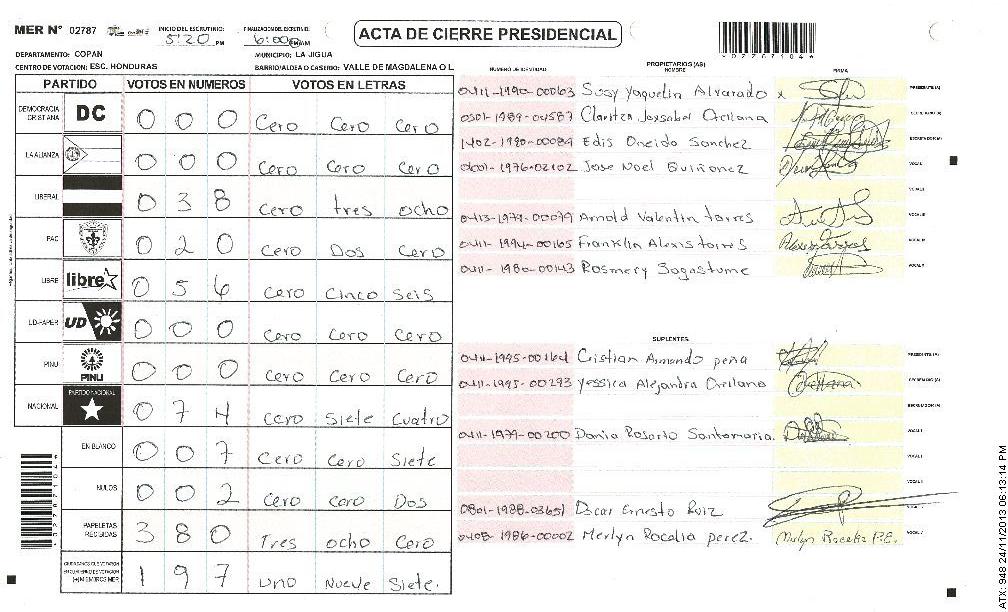 MER N° 02787
INICIO DEL ESCRUTINIO: 5:20 PM
FINALIZACION DEL ESCRUTINIO: 6:00
ACTA DE CIERRE PRESIDENCIAL
DEPARTAMENTO: COPAN
MUNICIPIO: LA JIGUA
CENTRO DE VOTACION: ESC. HONDURAS
BARRIO/ALDEA O CASERIO: VALLE DE MAGDALENA O L
PARTIDO VOTOS EN NUMEROS VOTOS EN LETRAS
DEMOCRACIA CRISTIANA DC 0 0 0 Cero Cero Cero
LA ALIANZA 0 0 0 Cero Cero Cero
LIBERAL 0 3 8 Cero tres ocho
PAC 0 2 0 Cero Dos Cero
LIBRE libre 0 5 6 Cero Cinco Seis
UD-FAPER UD 0 0 0 Cero Cero Cero
PINU PINU 0 0 0 Cero Cero Cero
NACIONAL PARTIDO NACIONAL 0 7 4 Cero Siete Cuatro
EN BLANCO 0 0 7 Cero Cero Siete
NULOS 0 0 2 Cero Cero Dos
PAPELETAS RECIBIDAS 3 8 0 Tres ocho Cero
1 9 7 Uno Nueve Siete.
NUMERO DE IDENTIDAD PROPIETARIOS (AS) NOMBRE FIRMA
0411-1990-00063 Susy Yaquelin Alvarado PRESIDENTE (A)
0501-1989-04587 Claritza Joxsabel Orellana SECRETARIO (A)
1402-1990-00084 Edis Oneida Sanchez ESCRUTADOR (A)
0401-1976-02102 Jose Noel Guiñonez VOCAL I
VOCAL II
0413-1979-00079 Arnold Valentin torres VOCAL III
0411-1994-00165 Franklin Alexis torres VOCAL IV
0411-1980-00143 Rosmery Sagastume VOCAL V
SUPLENTES
0411-1995-00164 Cristian Armando peña PRESIDENTE (A)
0411-1995-00293 Yessica Alejandra Orellana SECRETARIO (A)
ESCRUTADOR (A)
0411-1979-00200 Dania Rosario Santamaria. VOCAL I
VOCAL II
0801-1988-03651 Oscar Ernesto Ruiz
0408-1986-00002 Merlyn Rocalia perez.
ATX: 948 24/11/2013 06:13:14 PM